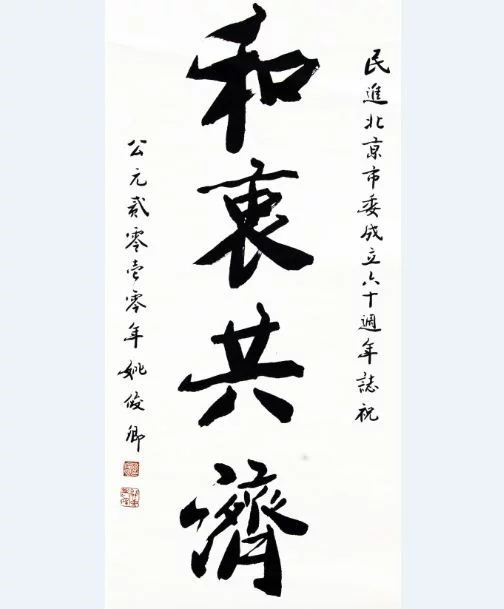 民進北京市委成立六十週年誌祝
和衷共濟
公元貳零壹零年姚俊卿